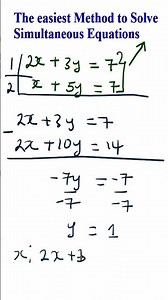 The easiest Method to Solve
Simultaneous Equations
1 | 2x + 3y = 7
2 | x + 5y = 7
2
- 2x + 3y = 7
2x + 10y = 14
-7y = -7
-7 -7
y = 1
x; 2x + 3